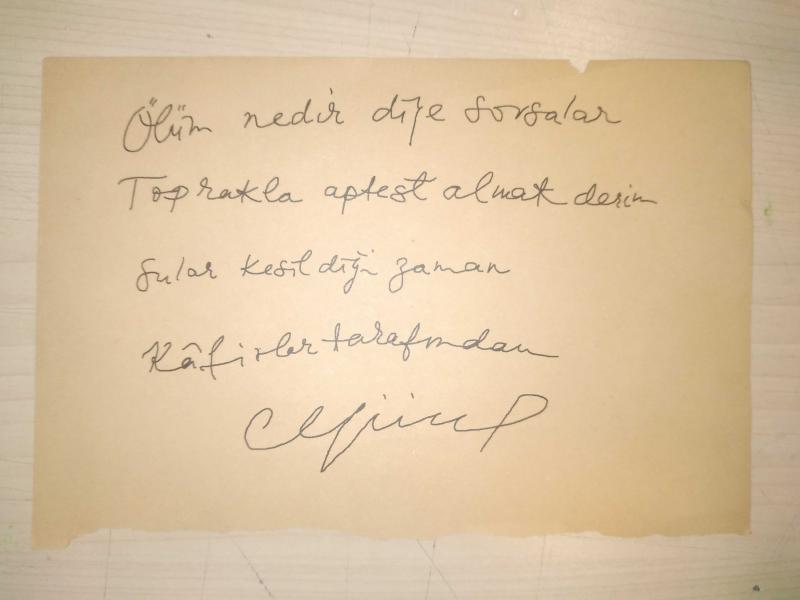 Ölüm nedir diye sorsalar
Toprakla aptest almak derim
Sular kesildiği zaman
Kâfirler tarafından